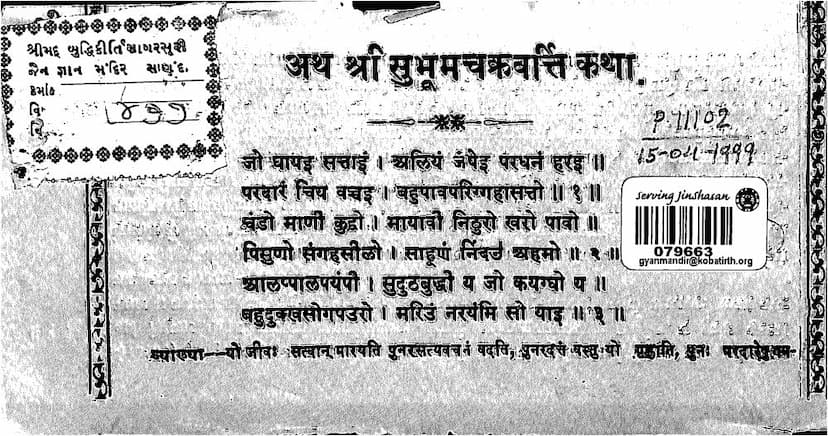 શ્રીમદ્ બુદ્ધિકીર્તિસાગરસુરી
જૈન જ્ઞાન મંદિર સાણંદ.
ક્રમાંક
વિ
अथ श्री सुभूमचक्रवर्त्ति कथा.
P. 11102
15-04-1999
जो घायइ सत्ताइं । अलियं जंपेइ परधनं हरइ ॥
परदारं चिय वच्चइ । बहुपावपरिग्गहासत्तो ॥ १ ॥
चंडो माणी कुद्धो । मायावी निठुरो खरो पावो ॥
पिसुणो संगहसीलो । साहूण निंदउ अहमो ॥ २ ॥
आलप्पालपयंपी । सुदुठबुद्धी य जो कयग्घो य ॥
बहुदुक्खसोगपउरो । मरिउं नरयंमि सो याइ ॥ ३ ॥
व्याख्या—यो जीवः सत्वान् मारयति पुनरसत्यवचनं वदति, पुनरदत्तं वस्तु यो गृह्णाति, पुनः
Serving Jinshasan
079663
gyanmandir@kobatirth.org